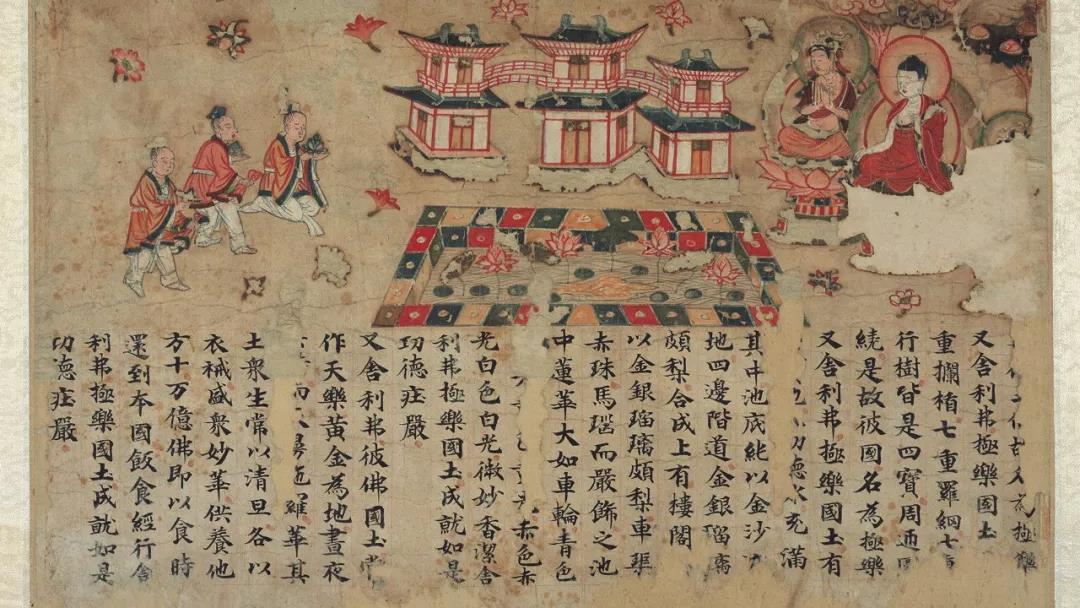 極樂
又舍利弗極樂國土
重欄楯七重羅網七
行樹皆是四寶周迊
繞是故彼國名為極樂
又舍利弗極樂國土有
功德水充滿
其中池底純以金沙
地四邊階道金銀瑠璃
頗梨合成上有樓閣
以金銀瑠璃頗梨車磲
赤珠馬瑙而嚴飾之池
中蓮華大如車輪青色
赤色赤
光白色白光微妙香潔舍
利弗極樂國土成就如是
功德莊嚴
又舍利弗彼佛國土常
作天樂黃金為地晝夜
而羅華其
土衆生常以清旦各以
衣裓盛衆妙華供養他
方十万億佛即以食時
還到本國飯食經行舍
利弗極樂國土成就如是
功德莊嚴